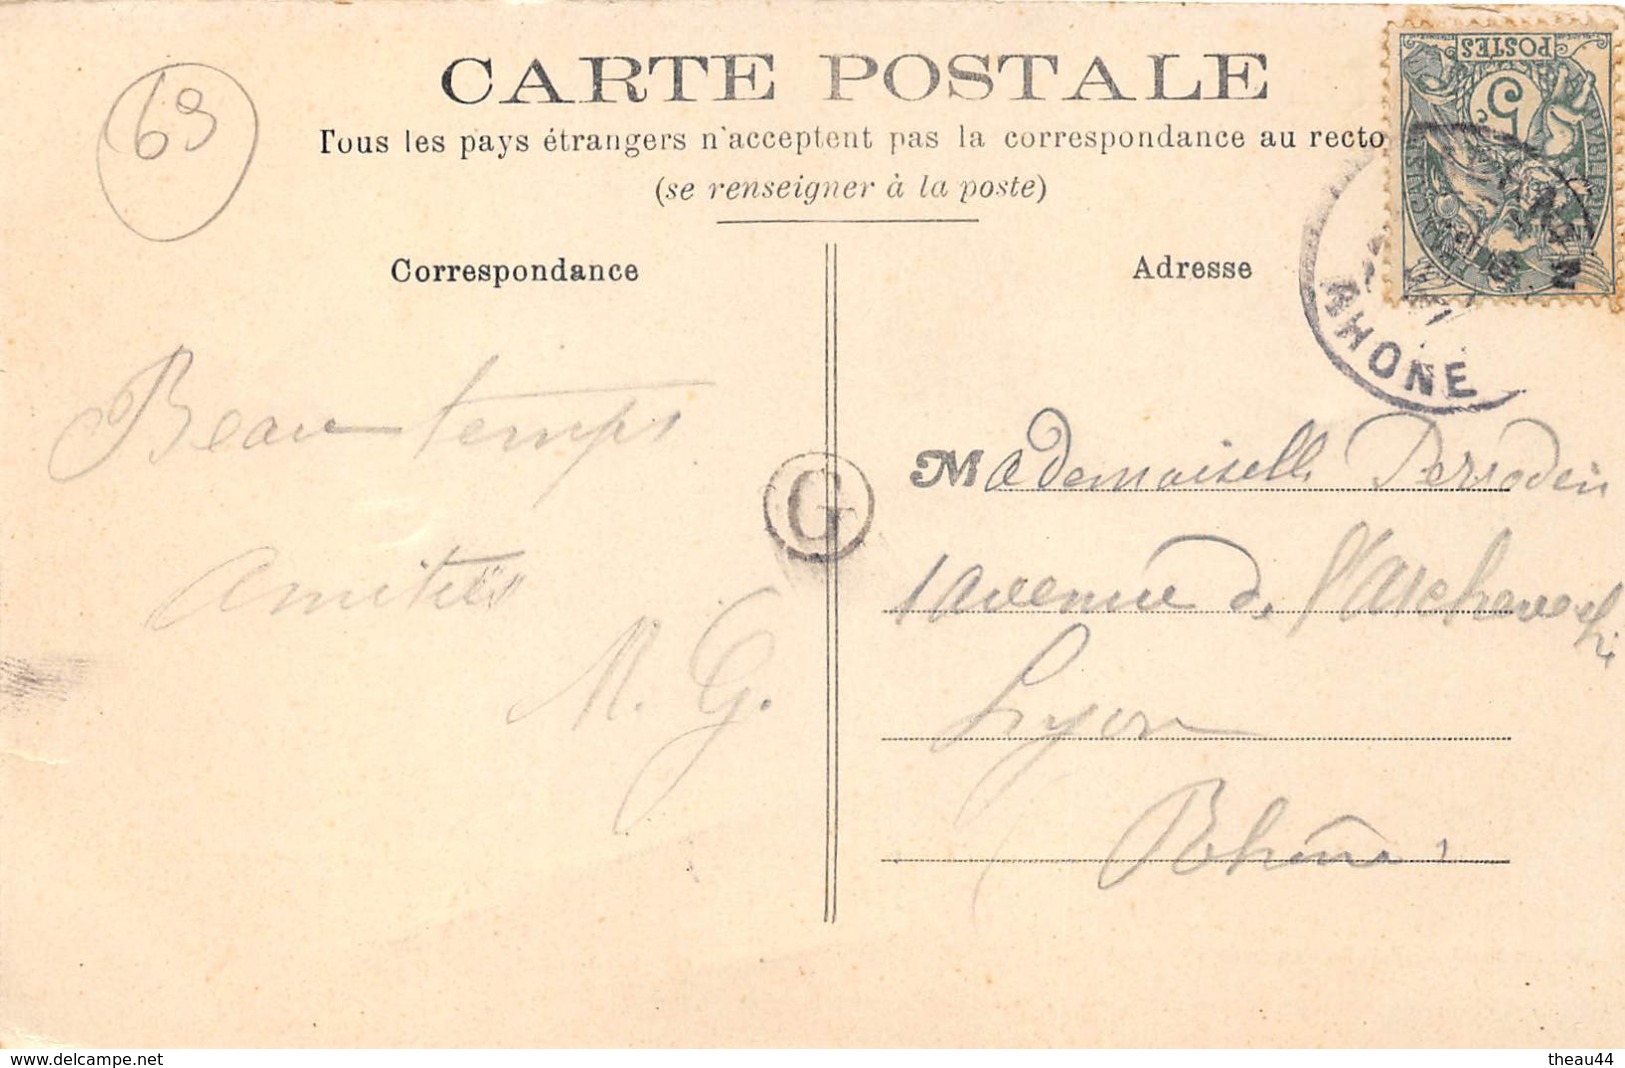 69
CARTE POSTALE
Tous les pays étrangers n'acceptent pas la correspondance au recto
(se renseigner à la poste)
POSTES
5
RHONE
Correspondance
Adresse
Beau temps
amitiés
M. G.
G
Mademoiselle
1 avenue de l'archevêché
Lyon
Rhône
www.delcampe.net
theau44